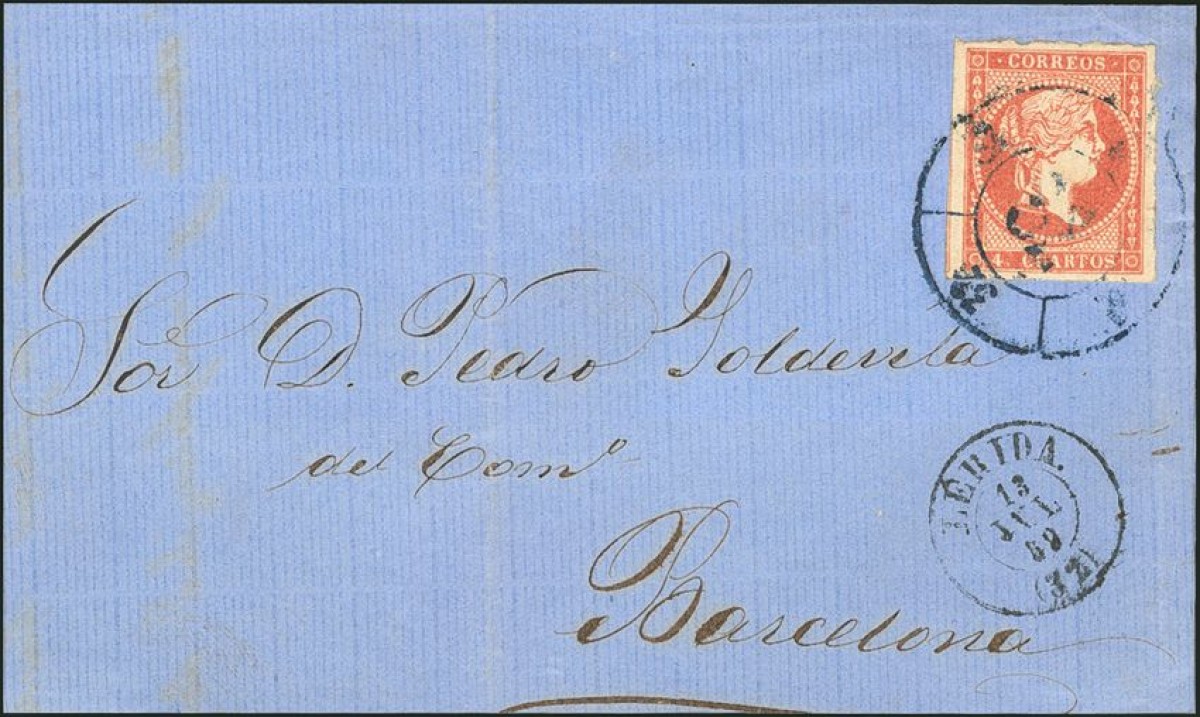 CORREOS
4. CUARTOS
Sor D. Pedro Yoldevela
del Com.º
Barcelona
LÉRIDA.
13
JUL
59
(32)